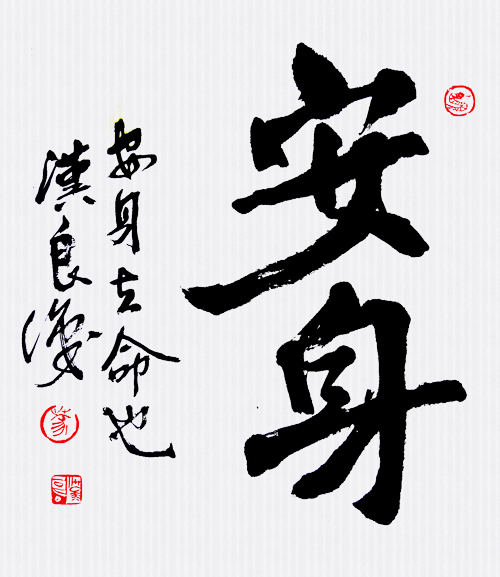 安身
安身立命也
漢良